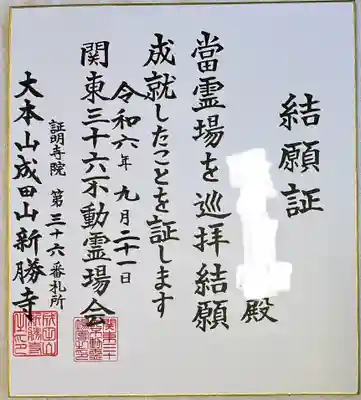 結願証
殿
當霊場を巡拝結願
成就したことを証します
令和六年九月二十一日
関東三十六不動霊場会
証明寺院 第三十六番札所
大本山成田山新勝寺